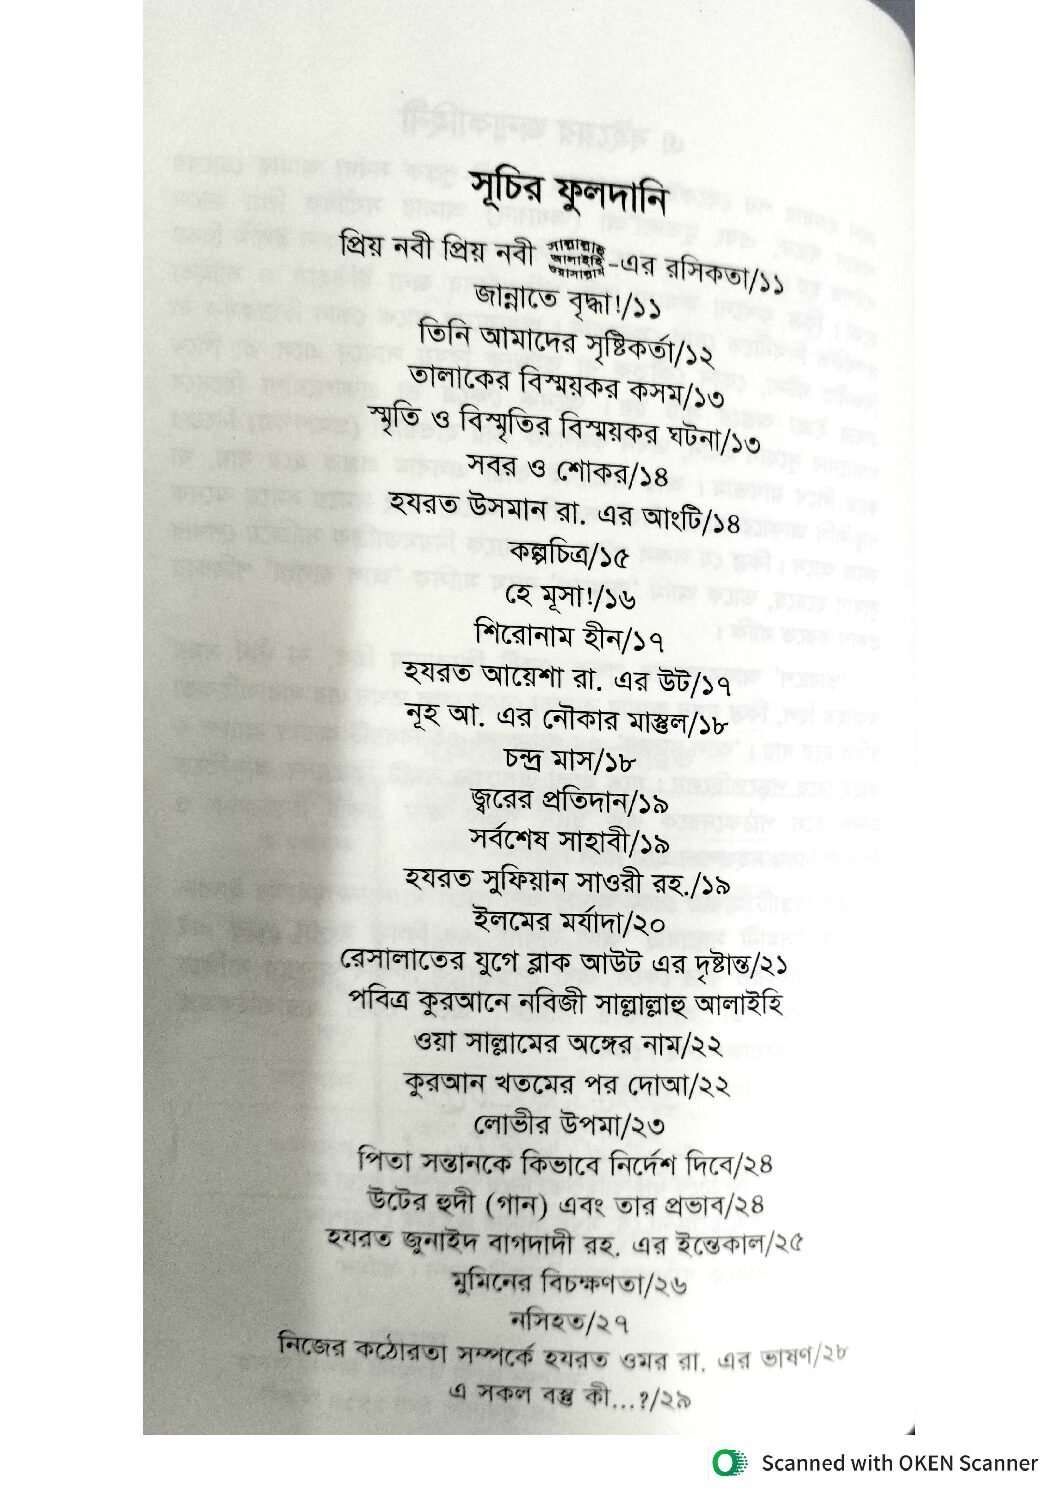 সূচির ফুলদানি
প্রিয় নবী প্রিয় নবী সাল্লাল্লাহু আলাইহি ওয়াসাল্লাম-এর রসিকতা/১১
জান্নাতে বৃদ্ধা!/১১
তিনি আমাদের সৃষ্টিকর্তা/১২
তালাকের বিস্ময়কর কসম/১৩
স্মৃতি ও বিস্মৃতির বিস্ময়কর ঘটনা/১৩
সবর ও শোকর/১৪
হযরত উসমান রা. এর আংটি/১৪
কল্পচিত্র/১৫
হে মূসা!/১৬
শিরোনাম হীন/১৭
হযরত আয়েশা রা. এর উট/১৭
নূহ আ. এর নৌকার মাস্তুল/১৮
চন্দ্র মাস/১৮
জ্বরের প্রতিদান/১৯
সর্বশেষ সাহাবী/১৯
হযরত সুফিয়ান সাওরী রহ./১৯
ইলমের মর্যাদা/২০
রেসালাতের যুগে ব্লাক আউট এর দৃষ্টান্ত/২১
পবিত্র কুরআনে নবিজী সাল্লাল্লাহু আলাইহি
ওয়া সাল্লামের অঙ্গের নাম/২২
কুরআন খতমের পর দোআ/২২
লোভীর উপমা/২৩
পিতা সন্তানকে কিভাবে নির্দেশ দিবে/২৪
উটের হুদী (গান) এবং তার প্রভাব/২৪
হযরত জুনাইদ বাগদাদী রহ. এর ইন্তেকাল/২৫
মুমিনের বিচক্ষণতা/২৬
নসিহত/২৭
নিজের কঠোরতা সম্পর্কে হযরত ওমর রা. এর ভাষণ/২৮
এ সকল বস্তু কী...?/২৯
Scanned with OKEN Scanner